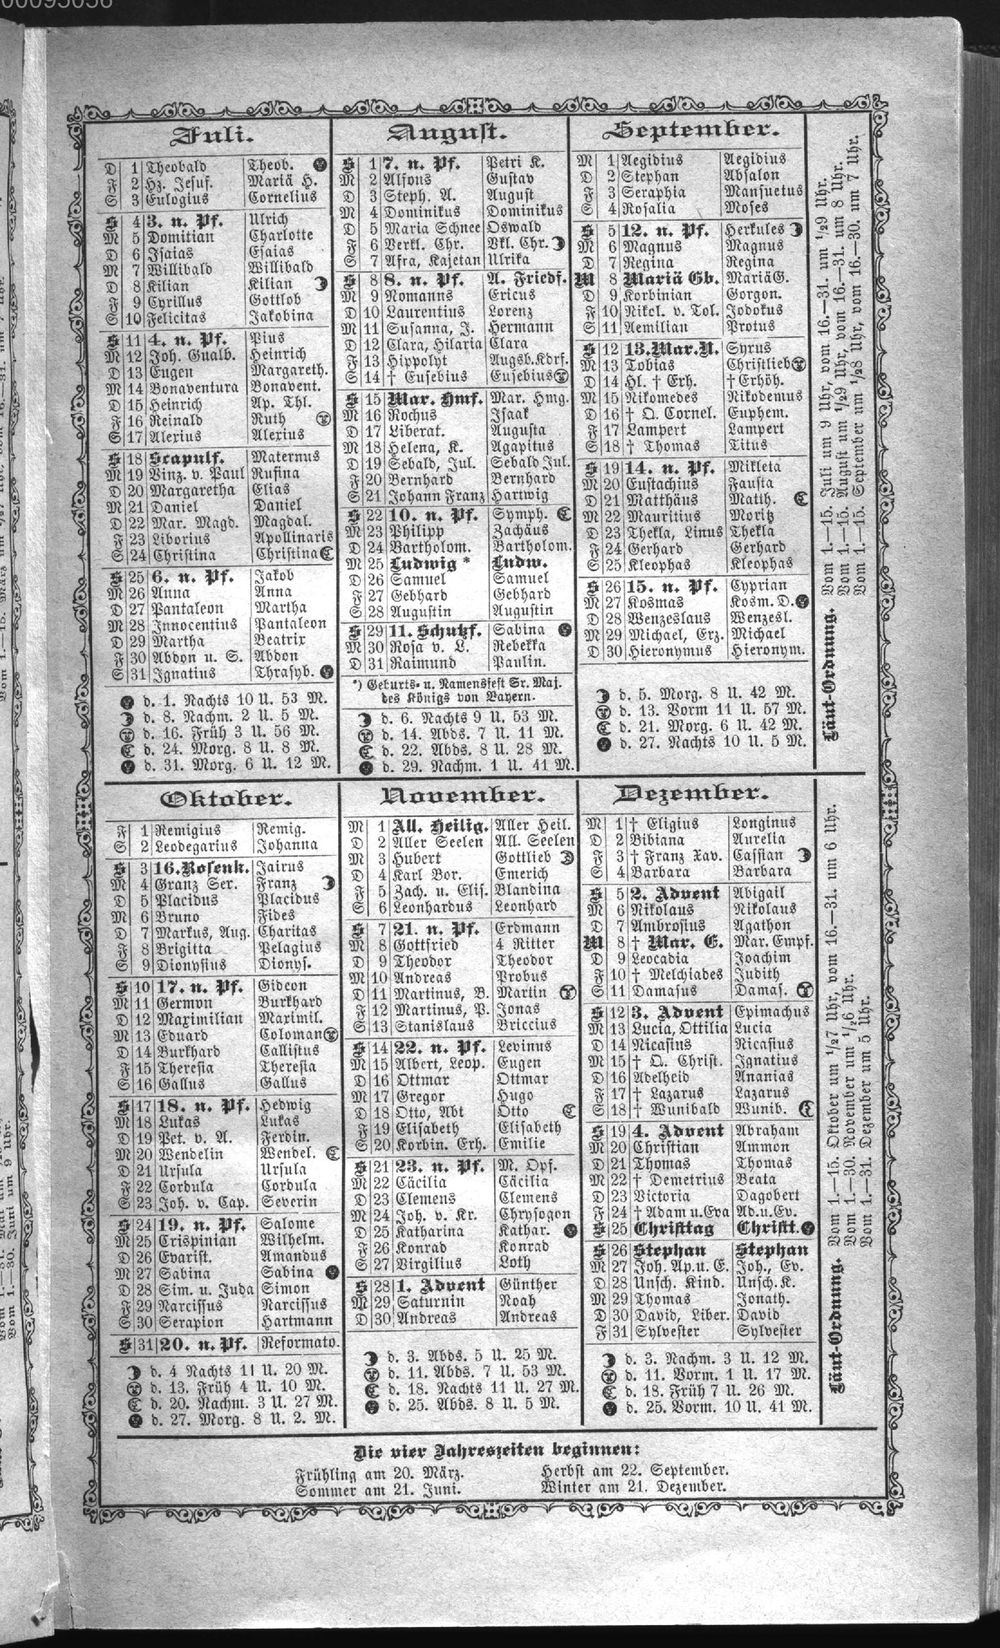 00095056
Juli.
D 1 Theobald Theob.
F 2 Hz. Jesuf. Mariä H.
S 3 Eulogius Cornelius
S 4 3. n. Pf. Ulrich
M 5 Domitian Charlotte
D 6 Isaias Esaias
M 7 Willibald Willibald
D 8 Kilian Kilian
F 9 Cyrillus Gottlob
S 10 Felicitas Jakobina
S 11 4. n. Pf. Pius
M 12 Joh. Gualb. Heinrich
D 13 Eugen Margareth.
M 14 Bonaventura Bonavent.
D 15 Heinrich Ap. Thl.
F 16 Reinald Ruth
S 17 Alexius Alexius
S 18 Scapulf. Maternus
M 19 Vinz. v. Paul Rufina
D 20 Margaretha Elias
M 21 Daniel Daniel
D 22 Mar. Magd. Magdal.
F 23 Liborius Apollinaris
S 24 Christina Christina
S 25 6. n. Pf. Jakob
M 26 Anna Anna
D 27 Pantaleon Martha
M 28 Innocentius Pantaleon
D 29 Martha Beatrix
F 30 Abdon u. S. Abdon
S 31 Ignatius Thrasyb.
d. 1. Nachts 10 U. 53 M.
d. 8. Nachm. 2 U. 5 M.
d. 16. Früh 3 U. 56 M.
d. 24. Morg. 8 U. 8 M.
d. 31. Morg. 6 U. 12 M.
August.
S 1 7. n. Pf. Petri K.
M 2 Alfons Gustav
D 3 Steph. A. August
M 4 Dominikus Dominikus
D 5 Maria Schnee Oswald
F 6 Verkl. Chr. Vkl. Chr.
S 7 Afra, Kajetan Ulrika
S 8 8. n. Pf. A. Friedf.
M 9 Romanns Ericus
D 10 Laurentius Lorenz
M 11 Susanna, J. Hermann
D 12 Clara, Hilaria Clara
F 13 Hippolyt Augsb.Kdrf.
S 14 † Eusebius Eusebius
S 15 Mar. Hmf. Mar. Hmg.
M 16 Rochus Isaak
D 17 Liberat. Augusta
M 18 Helena, K. Agapitus
D 19 Sebald, Jul. Sebald Jul.
F 20 Bernhard Bernhard
S 21 Johann Franz Hartwig
S 22 10. n. Pf. Symph.
M 23 Philipp Zachäus
D 24 Bartholom. Bartholom.
M 25 Ludwig * Ludw.
D 26 Samuel Samuel
F 27 Gebhard Gebhard
S 28 Augustin Augustin
S 29 11. Schutzf. Sabina
M 30 Rosa v. L. Rebekka
D 31 Raimund Paulin.
*) Geburts- u. Namensfest Sr. Maj.
des Königs von Bayern.
d. 6. Nachts 9 U. 53 M.
d. 14. Abds. 7 U. 11 M.
d. 22. Abds. 8 U. 28 M.
d. 29. Nachm. 1 U. 41 M.
September.
M 1 Aegidius Aegidius
D 2 Stephan Absalon
F 3 Seraphia Mansuetus
S 4 Rosalia Moses
S 5 12. n. Pf. Herkules
M 6 Magnus Magnus
D 7 Regina Regina
M 8 Mariä Gb. MariäG.
D 9 Korbinian Gorgon.
F 10 Nikol. v. Tol. Jodokus
S 11 Aemilian Protus
S 12 13.Mar.N. Syrus
M 13 Tobias Christlieb
D 14 Hl. † Erh. † Erhöh.
M 15 Nikomedes Nikodemus
D 16 † Q. Cornel. Euphem.
F 17 Lampert Lampert
S 18 † Thomas Titus
S 19 14. n. Pf. Mikleta
M 20 Eustachius Fausta
D 21 Matthäus Matth.
M 22 Mauritius Moritz
D 23 Thekla, Linus Thekla
F 24 Gerhard Gerhard
S 25 Kleophas Kleophas
S 26 15. n. Pf. Cyprian
M 27 Kosmas Kosm. D.
D 28 Wenzeslaus Wenzesl.
M 29 Michael, Erz. Michael
D 30 Hieronymus Hieronym.
d. 5. Morg. 8 U. 42 M.
d. 13. Vorm 11 U. 57 M.
d. 21. Morg. 6 U. 42 M.
d. 27. Nachts 10 U. 5 M.
Läut-Ordnung.
Vom 1.—15. Juli um 9 Uhr, vom 16.—31. um 1/29 Uhr.
Vom 1.—15. August um 1/29 Uhr, vom 16.—31. um 8 Uhr.
Vom 1.—15. September um 1/28 Uhr, vom 16.—30. um 7 Uhr.
Oktober.
F 1 Remigius Remig.
S 2 Leodegarius Johanna
S 3 16.Rosenk. Jairus
M 4 Granz Ser. Franz
D 5 Placidus Placidus
M 6 Bruno Fides
D 7 Markus, Aug. Charitas
F 8 Brigitta Pelagius
S 9 Dionysius Dionys.
S 10 17. n. Pf. Gideon
M 11 Germon Burkhard
D 12 Maximilian Maximil.
M 13 Eduard Coloman
D 14 Burkhard Callistus
F 15 Theresia Theresia
S 16 Gallus Gallus
S 17 18. n. Pf. Hedwig
M 18 Lukas Lukas
D 19 Pet. v. A. Ferdin.
M 20 Wendelin Wendel.
D 21 Ursula Ursula
F 22 Cordula Cordula
S 23 Joh. v. Cap. Severin
S 24 19. n. Pf. Salome
M 25 Crispinian Wilhelm.
D 26 Evarist. Amandus
M 27 Sabina Sabina
D 28 Sim. u. Juda Simon
F 29 Narcissus Narcissus
S 30 Serapion Hartmann
S 31 20. n. Pf. Reformato.
d. 4 Nachts 11 U. 20 M.
d. 13. Früh 4 U. 10 M.
d. 20. Nachm. 3 U. 27 M.
d. 27. Morg. 8 U. 2. M.
November.
M 1 All. Heilig. Aller Heil.
D 2 Aller Seelen All. Seelen
M 3 Hubert Gottlieb
D 4 Karl Bor. Emerich
F 5 Zach. u. Elis. Blandina
S 6 Leonhardus Leonhard
S 7 21. n. Pf. Erdmann
M 8 Gottfried 4 Ritter
D 9 Theodor Theodor
M 10 Andreas Probus
D 11 Martinus, B. Martin
F 12 Martinus, P. Jonas
S 13 Stanislaus Briccius
S 14 22. n. Pf. Levinus
M 15 Albert, Leop. Eugen
D 16 Ottmar Ottmar
M 17 Gregor Hugo
D 18 Otto, Abt Otto
F 19 Elisabeth Elisabeth
S 20 Korbin. Erh. Emilie
S 21 23. n. Pf. M. Opf.
M 22 Cäcilia Cäcilia
D 23 Clemens Clemens
M 24 Joh. v. Kr. Chrysogon
D 25 Katharina Kathar.
F 26 Konrad Konrad
S 27 Virgilius Loth
S 28 1. Advent Günther
M 29 Saturnin Noah
D 30 Andreas Andreas
d. 3. Abds. 5 U. 25 M.
d. 11. Abds. 7 U. 53 M.
d. 18. Nachts 11 U. 27 M.
d. 25. Abds. 8 U. 5 M.
Dezember.
M 1 † Eligius Longinus
D 2 Bibiana Aurelia
F 3 † Franz Xav. Cassian
S 4 Barbara Barbara
S 5 2. Advent Abigail
M 6 Nikolaus Nikolaus
D 7 Ambrosius Agathon
M 8 † Mar. E. Mar. Empf.
D 9 Leocadia Joachim
F 10 † Melchiades Judith
S 11 Damasus Damas.
S 12 3. Advent Epimachus
M 13 Lucia, Ottilia Lucia
D 14 Nicasins Nicasius
M 15 † Q. Christ. Ignatius
D 16 Adelheid Ananias
F 17 † Lazarus Lazarus
S 18 † Wunibald Wunib.
S 19 4. Advent Abraham
M 20 Christian Ammon
D 21 Thomas Thomas
M 22 † Demetrius Beata
D 23 Victoria Dagobert
F 24 † Adam u.Eva Ad.u.Ev.
S 25 Christtag Christt.
S 26 Stephan Stephan
M 27 Joh. Ap.u. E. Joh., Ev.
D 28 Unsch. Kind. Unsch.K.
M 29 Thomas Jonath.
D 30 David, Liber. David
F 31 Sylvester Sylvester
d. 3. Nachm. 3 U. 12 M.
d. 11. Vorm. 1 U. 17 M.
d. 18. Früh 7 U. 26 M.
d. 25. Vorm. 10 U. 41 M.
Läut-Ordnung.
Vom 1.—15. Oktober um 1/27 Uhr, vom 16.—31. um 6 Uhr.
Vom 1.—30. November um 1/26 Uhr.
Vom 1.—31. Dezember um 5 Uhr.
Die vier Jahreszeiten beginnen:
Frühling am 20. März. Herbst am 22. September.
Sommer am 21. Juni. Winter am 21. Dezember.